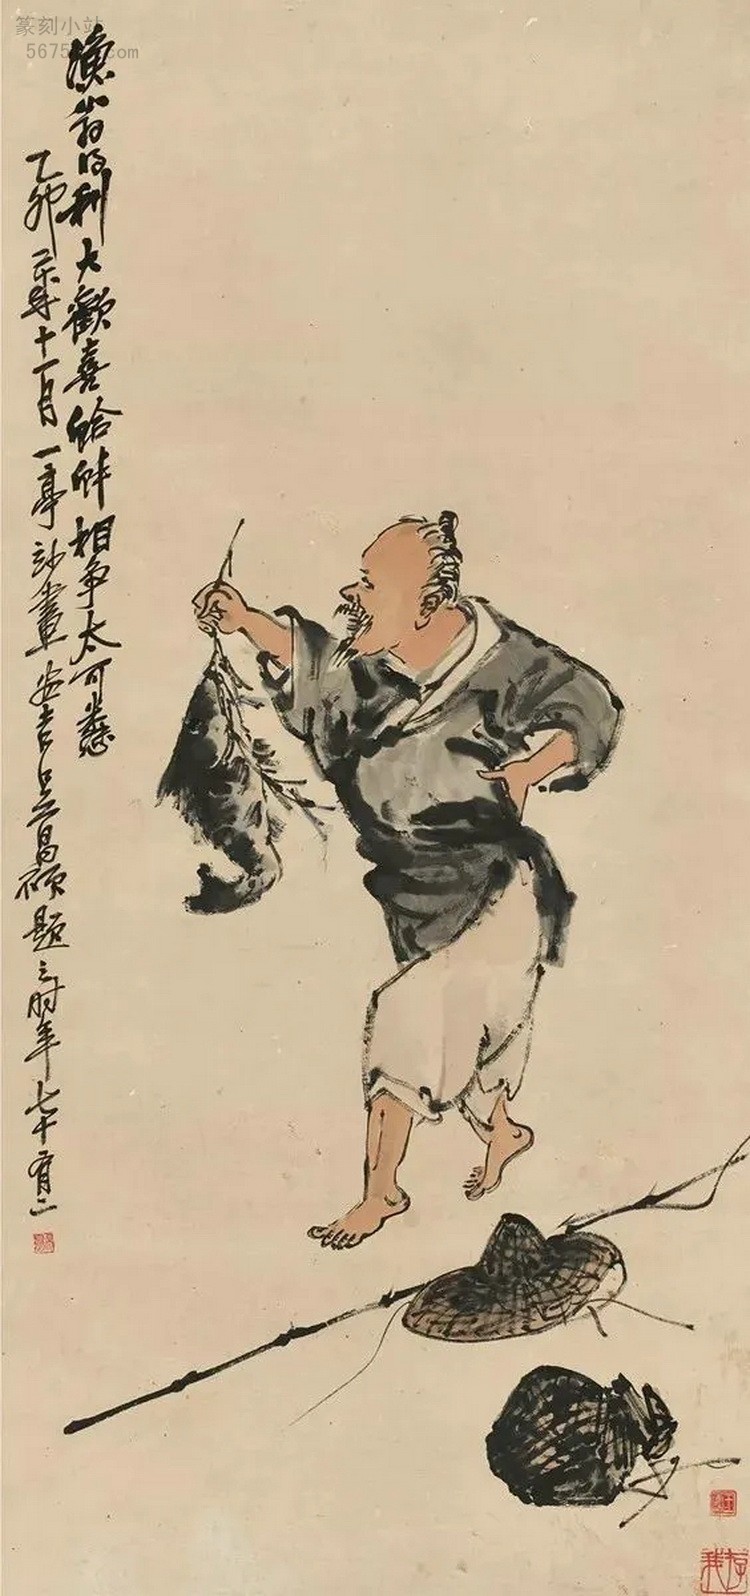 篆刻小站
漁翁得利大歡喜蛤蚌相爭太可
乙卯十一月一亭畫安吉吳昌碩題之時年七十有二